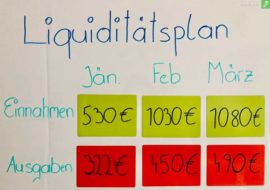 Liquiditätsplan
Jän. Feb März
Einnahmen 530€ 1030€ 1080€
Ausgaben 322€ 450€ 490€